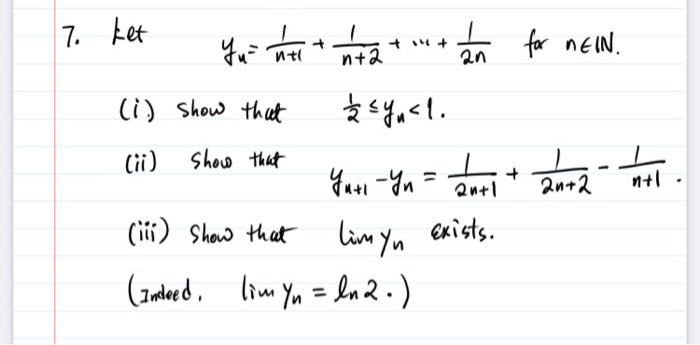 7. Let y_n = 1/(n+1) + 1/(n+2) + ... + 1/(2n) for n∈ℕ.
(i) Show that 1/2 ≤ y_n < 1.
(ii) Show that y_{n+1} - y_n = 1/(2n+1) + 1/(2n+2) - 1/(n+1).
(iii) Show that lim y_n exists.
(Indeed, lim y_n = ln 2.)